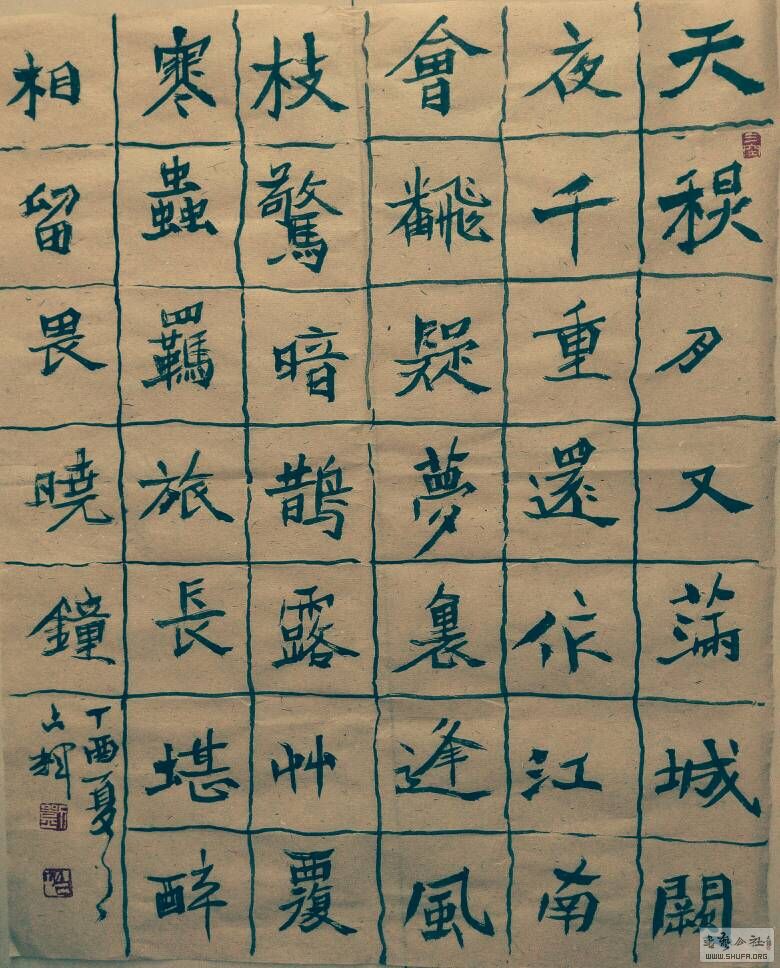 天秋月又滿城闕
夜千重還作江南
會飜疑夢裏逢風
枝驚暗鵲露艸覆
寒蟲羈旅長堪醉
相留畏曉鐘
丁酉夏
公社
WWW.SHUFA.ORG